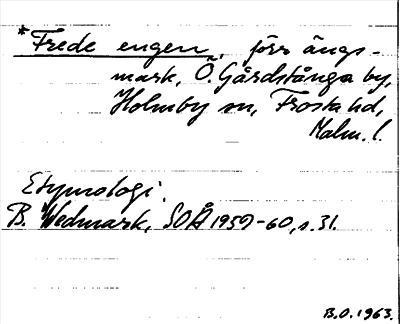 *Frede engen, förr ängs-
mark, Ö. Gårdstånga by,
Holmby sn, Frosta hd,
Malm. l.
Etymologi.
B. Wedmark, SOÅ 1959-60, s. 31.
B.O. 1963.